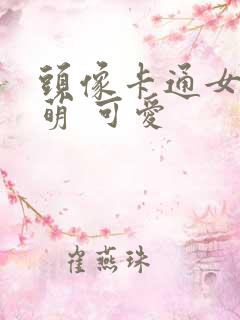 頭像卡通女
萌 可愛
崔燕珠